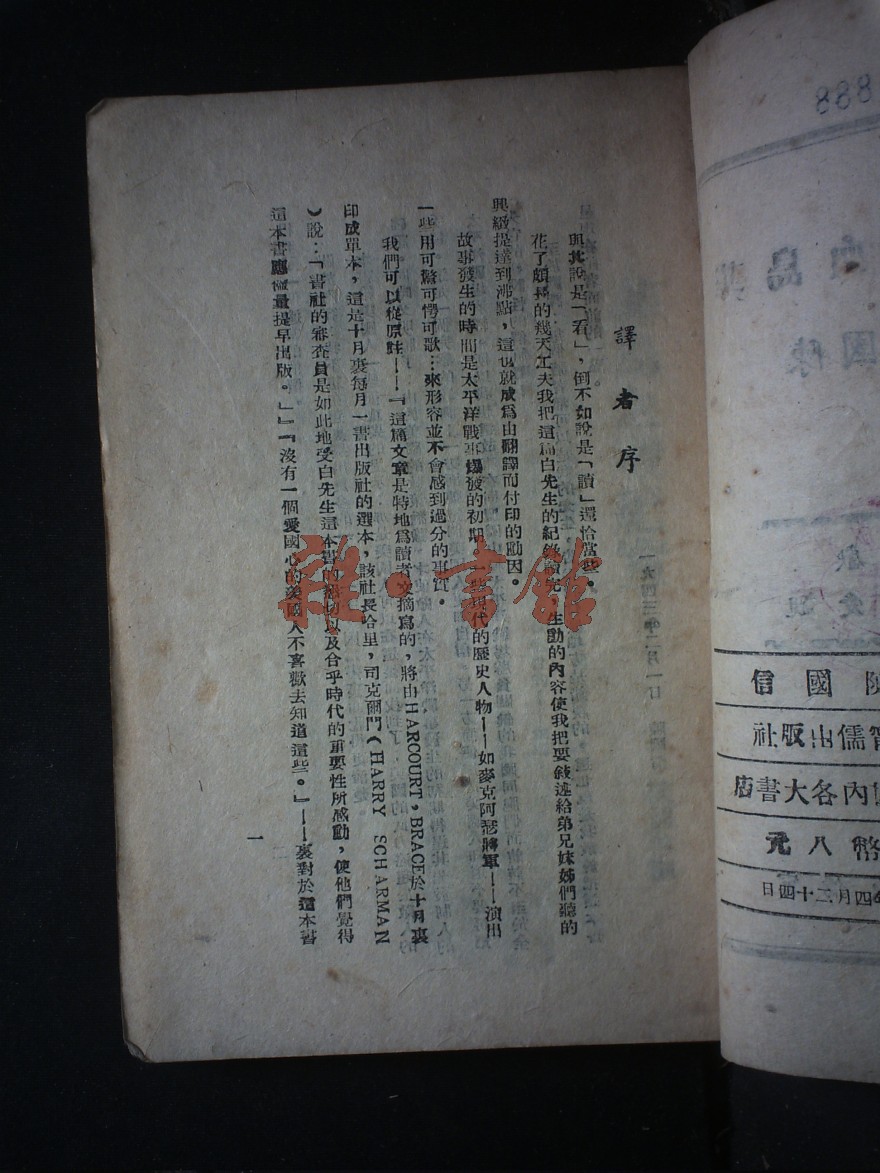 譯者序
與其說是「看」，倒不如說是「讀」還恰當些。
花了頗長的幾天工夫我把這篇白先生的紀錄讀完，生動的內容使我把要敍述給弟兄妹姊們聽的
興緻提達到沸點，這也就成爲由翻譯而付印的動因。
故事發生的時間是太平洋戰事爆發的初期，一些現代的歷史人物——如麥克阿瑟將軍——演出
一些用可驚可愕可歌…來形容並不會感到過分的事實。
我們可以從原註——『這篇文章是特地爲讀者文摘寫的，將由HARCOURT，BRACE於十月裏
印成單本，這是十月裏每月一書出版社的選本，該社長哈里，司克爾門（HARRY SCHARMAN
）說：「書社的審查員是如此地受白先生這本書的 以及合乎時代的重要性所感動，使他們覺得
這本書應儘量提早出版。」』『沒有一個愛國心的美國人不喜歡去知道這些。』——裏對於這本書
一
雜·書館
888
島
國
信
儒出版社
內各大書店
幣八元
四月二十四日